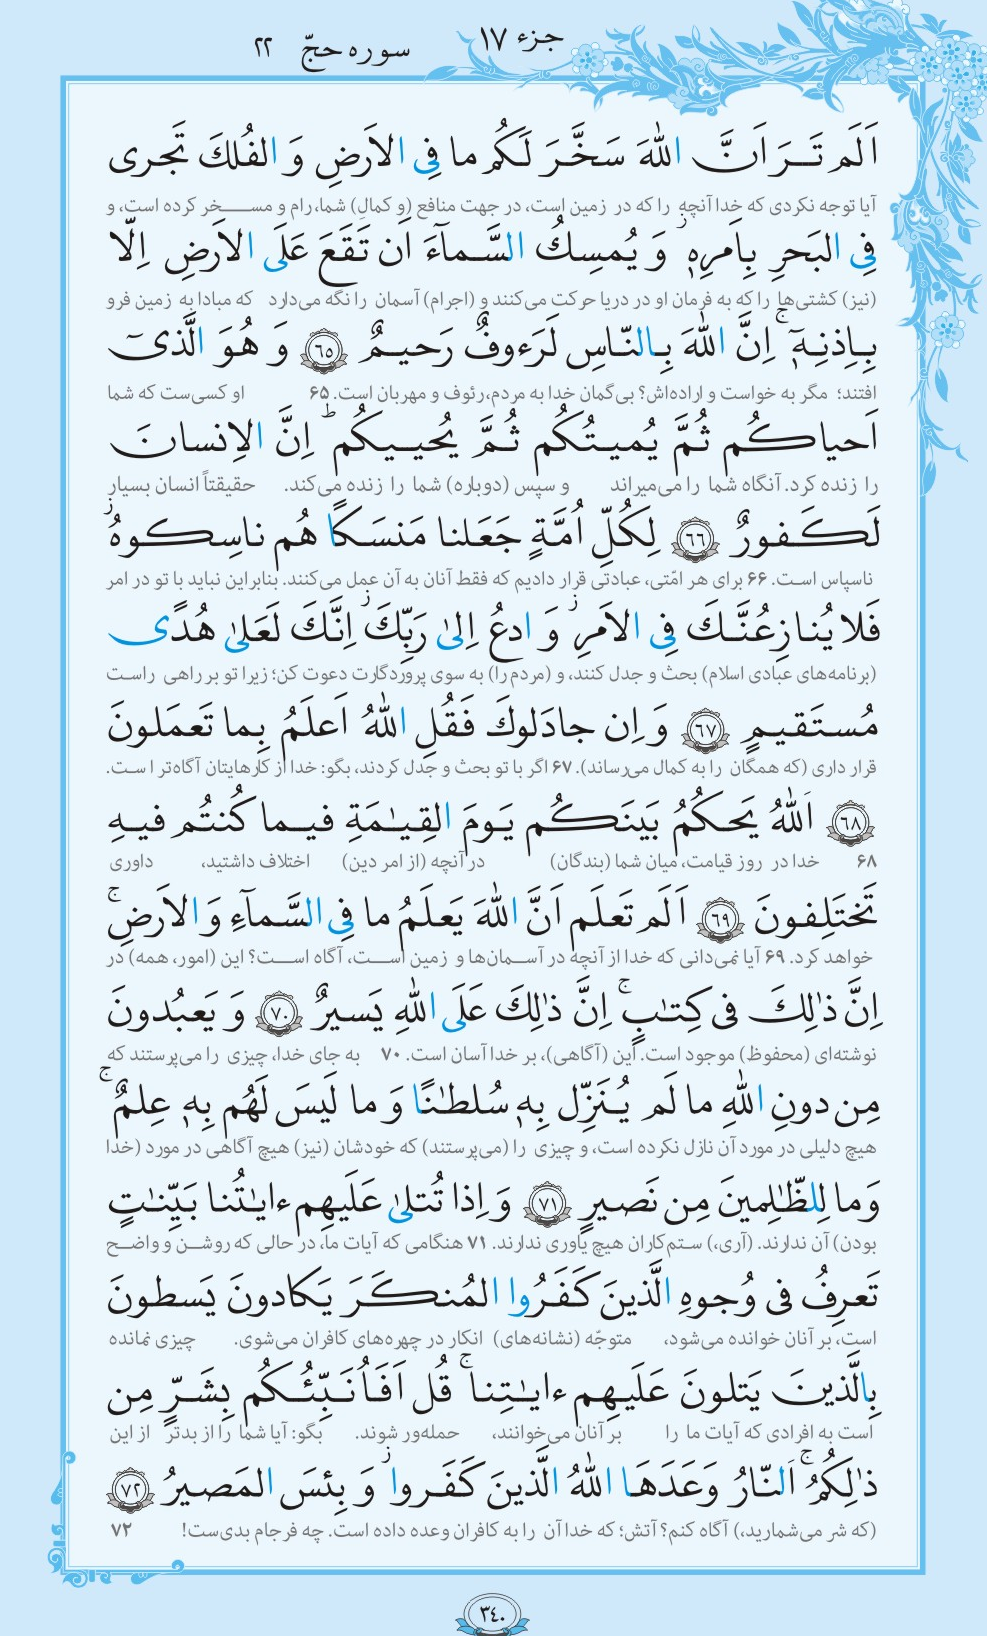 جزء ۱۷ سوره حجّ ۲۲
اَلَم تَرَ اَنَّ اللّٰهَ سَخَّرَ لَكُم ما فِى الاَرضِ وَ الفُلكَ تَجرى
آیا توجه نکردی که خدا آنچه را که در زمین است، در جهت منافع (و کمالِ) شما، رام و مسخر کرده است، و
فِى البَحرِ بِاَمرِهٖ ز وَ يُمسِكُ السَّماءَ اَن تَقَعَ عَلَى الاَرضِ اِلّا
(نیز) کشتی‌ها را که به فرمان او در دریا حرکت می‌کنند و (اجرام) آسمان را نگه می‌دارد که مبادا به زمین فرو
بِاِذنِهٖٓ ج اِنَّ اللّٰهَ بِالنّاسِ لَرَءوفٌ رَحيمٌ ٦٥ وَ هُوَ الَّذىٓ
افتند؛ مگر به خواست و اراده‌اش؟ بی‌گمان خدا به مردم، رئوف و مهربان است. ۶۵ او کسی‌ست که شما
اَحياكُم ثُمَّ يُميتُكُم ثُمَّ يُحييكُم ط اِنَّ الاِنسانَ
را زنده کرد. آنگاه شما را می‌میراند و سپس (دوباره) شما را زنده می‌کند. حقیقتاً انسان بسیار
لَكَفورٌ ٦٦ لِكُلِّ اُمَّةٍ جَعَلنا مَنسَكًا هُم ناسِكوهُ ز
ناسپاس است. ۶۶ برای هر امّتی، عبادتی قرار دادیم که فقط آنان به آن عمل می‌کنند. بنابراین نباید با تو در امر
فَلا يُنازِعُنَّكَ فِى الاَمرِ ز وَ ادعُ اِلىٰ رَبِّكَ ز اِنَّكَ لَعَلىٰ هُدًى
(برنامه‌های عبادی اسلام) بحث و جدل کنند، و (مردم را) به سوی پروردگارت دعوت کن؛ زیرا تو بر راهی راست
مُستَقيمٍ ٦٧ وَ اِن جادَلوكَ فَقُلِ اللّٰهُ اَعلَمُ بِما تَعمَلونَ
قرار داری (که همگان را به کمال می‌رساند). ۶۷ اگر با تو بحث و جدل کردند، بگو: خدا از کارهایتان آگاه‌تر است.
٦٨ اَللّٰهُ يَحكُمُ بَينَكُم يَومَ القِيٰمَةِ فيما كُنتُم فيهِ
۶۸ خدا در روز قیامت، میان شما (بندگان) در آنچه (از امر دین) اختلاف داشتید، داوری
تَختَلِفونَ ٦٩ اَلَم تَعلَم اَنَّ اللّٰهَ يَعلَمُ ما فِى السَّماءِ وَ الاَرضِ ج
خواهد کرد. ۶۹ آیا نمی‌دانی که خدا از آنچه در آسمان‌ها و زمین است، آگاه است؟ این (امور، همه) در
اِنَّ ذٰلِكَ فى كِتٰبٍ ج اِنَّ ذٰلِكَ عَلَى اللّٰهِ يَسيرٌ ٧٠ وَ يَعبُدونَ
نوشته‌ای (محفوظ) موجود است. این (آگاهی)، بر خدا آسان است. ۷۰ به جای خدا، چیزی را می‌پرستند که
مِن دونِ اللّٰهِ ما لَم يُنَزِّل بِهٖ سُلطٰنًا وَ ما لَيسَ لَهُم بِهٖ عِلمٌ ج
هیچ دلیلی در مورد آن نازل نکرده است، و چیزی را (می‌پرستند) که خودشان (نیز) هیچ آگاهی در مورد (خدا
وَ ما لِلظّٰلِمينَ مِن نَصيرٍ ٧١ وَ اِذا تُتلىٰ عَلَيهِم ءايٰتُنا بَيِّنٰتٍ
بودن) آن ندارند. (آری،) ستم‌کاران هیچ یاوری ندارند. ۷۱ هنگامی که آیات ما، در حالی که روشن و واضح
تَعرِفُ فى وُجوهِ الَّذينَ كَفَرُوا المُنكَرَ يَكادونَ يَسطونَ
است، بر آنان خوانده می‌شود، متوجّه (نشانه‌های) انکار در چهره‌های کافران می‌شوی. چیزی نمانده
بِالَّذينَ يَتلونَ عَلَيهِم ءايٰتِنا ج قُل اَفَاُنَبِّئُكُم بِشَرٍّ مِن
است به افرادی که آیات ما را بر آنان می‌خوانند، حمله‌ور شوند. بگو: آیا شما را از بدتر از این
ذٰلِكُمُ ج اَلنّارُ وَعَدَهَا اللّٰهُ الَّذينَ كَفَروا ز وَ بِئسَ المَصيرُ ٧٢
(که شر می‌شمارید،) آگاه کنم؟ آتش؛ که خدا آن را به کافران وعده داده است. چه فرجام بدی‌ست! ۷۲
٣٤٠